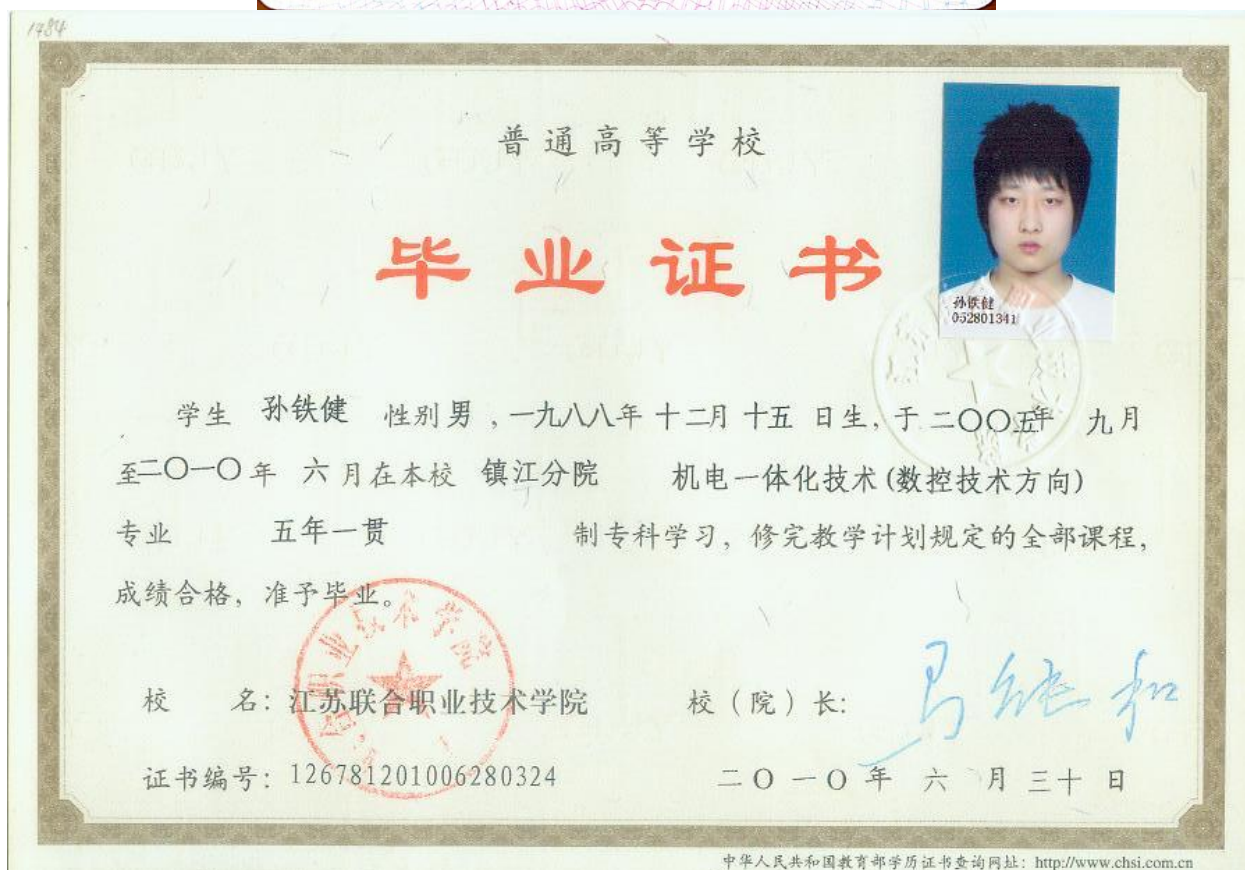 1784
普通高等学校
毕业证书
孙铁健
052801341
学生 孙铁健 性别 男 ,一九八八年 十二月 十五 日生, 于 二〇〇五年 九月
至二〇一〇年 六 月在本校 镇江分院 机电一体化技术(数控技术方向)
专业 五年一贯 制专科学习, 修完教学计划规定的全部课程,
成绩合格, 准予毕业。
校 名: 江苏联合职业技术学院 校(院)长: 马能和
证书编号: 126781201006280324 二〇一〇年 六 月 三十 日
中华人民共和国教育部学历证书查询网址: http://www.chsi.com.cn